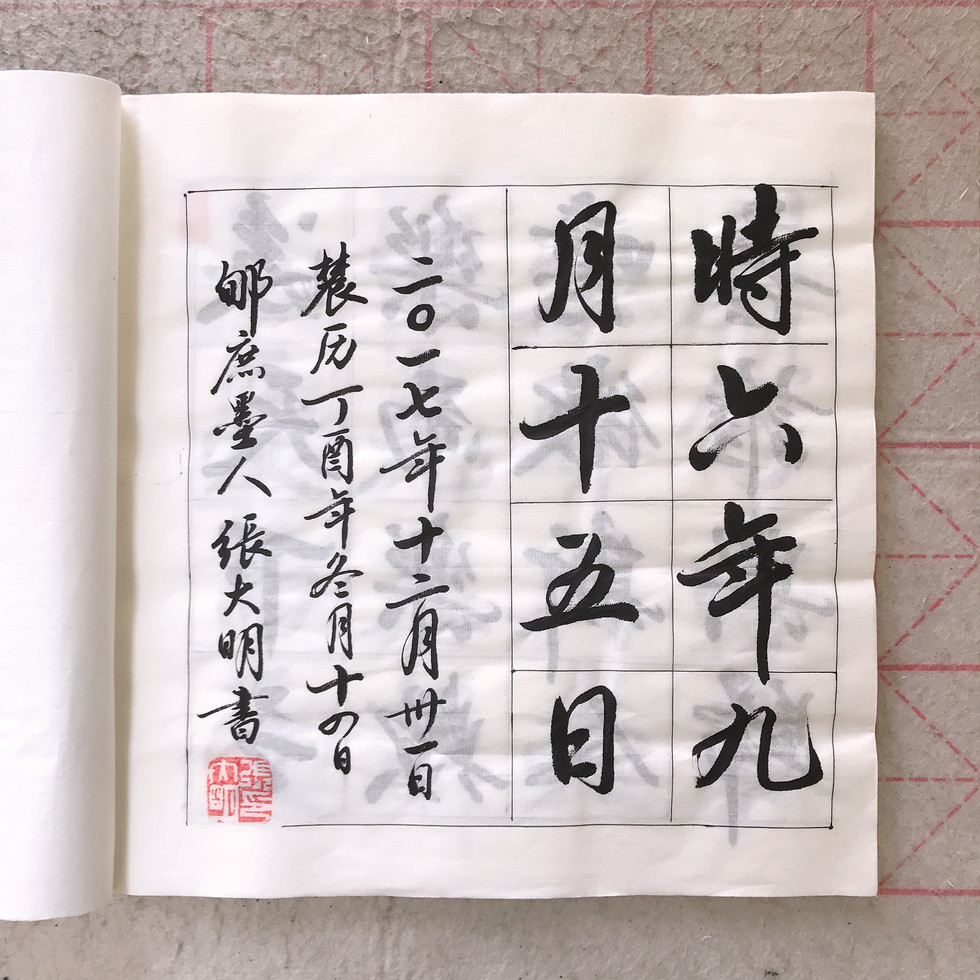 時六年九
月十五日
二〇一七年十二月卅一日
農历丁酉年冬月十四日
庶墨人張大明書
張印大明